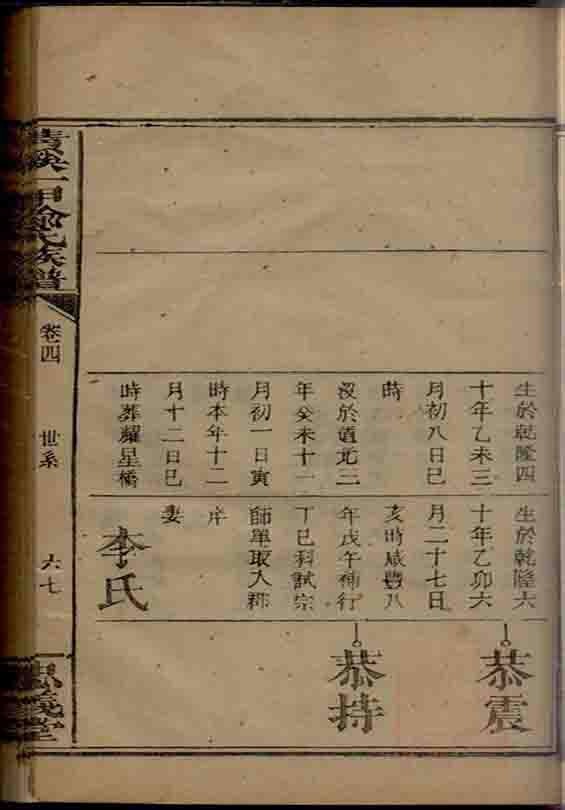 生於乾隆四
十年乙未三
月初八日巳
時
沒於道光三
年癸未十一
月初一日寅
時本年十二
月十二日巳
時葬耀星橋
生於乾隆六
十年乙卯六
月二十七日
亥時咸豐八
年戊午補行
丁巳科試宗
師單取入郡
庠
妻
李氏
恭震
恭持
氏族譜
卷四
世系
六七
義堂